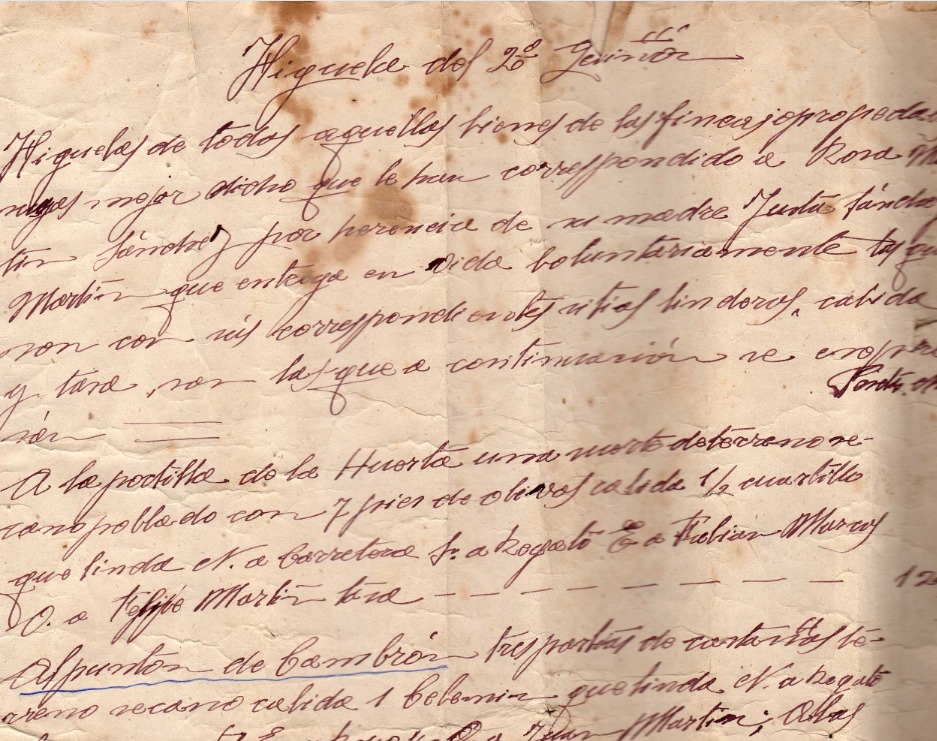 Higuela del 2º
Higuelas de todos aquellos bienes de las fincas
mejor dicho que le han correspondido a Rosa
tin Sánchez por herencia de su madre Justa Sánche
Martin que entega en vida boluntariamente
son con sus correspondientes sitios linderos, cabida
y tasa, son las que a continuación se
sán
A la portilla de la Huerta una suerte de terreno se-
cano poblado con 7 pies de olivos cabida 1/2 cuartillo
que linda N. a Carretera S. a Regato E a Fabian Marcos
O. a Felipe Martin tasa - - - - - - - - - - 12
Al punton de Cambrón tres partes de castaños te-
rreno secano cabida 1 Celemin que linda N. a Regato
O. a Juan Martin; Otras